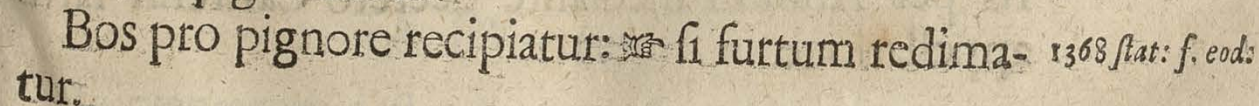 Bos pro pignore recipiatur: ☞ ſi furtum redima- 1368 ſtat: f. eod:
tur.